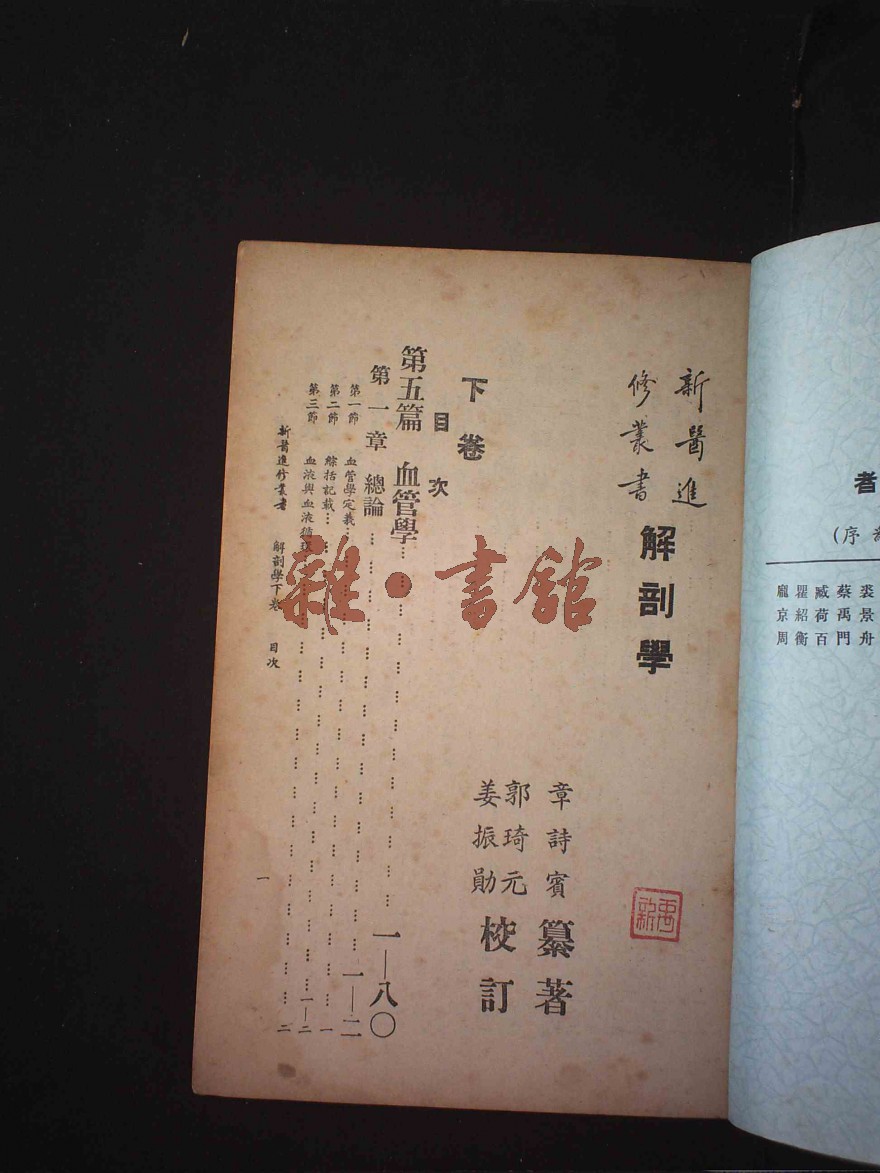 新醫進
修叢書
解剖學
章詩賓 纂著
郭琦元
姜振勛 校訂
下卷
目次
第五篇 血管學………………一—八〇
第一章 總論………………一—二
第一節 血管學定義………………一
第二節 綜括記載………………一—二
第三節 血液與血液循環………………二
新醫進修叢書 解剖學下卷 目次
一
雜·書館
者
(序
裘景舟
蔡禹門
臧荷百
瞿紹衡
龐京周